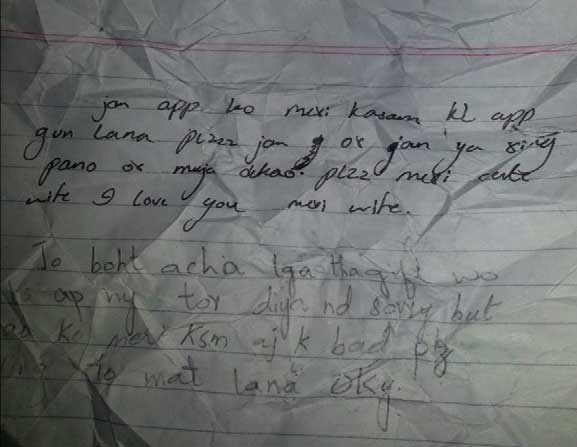 jan app ko meri kasam kl app
gun lana plzzz jan or jan ya ring
pano or muja dekao. plzz meri cute
wife I love you meri wife.
To boht acha lga tha gift wo
ap ny tor diya nd sorry but
ko meri Ksm aj k bad plz
to mat lana oky.